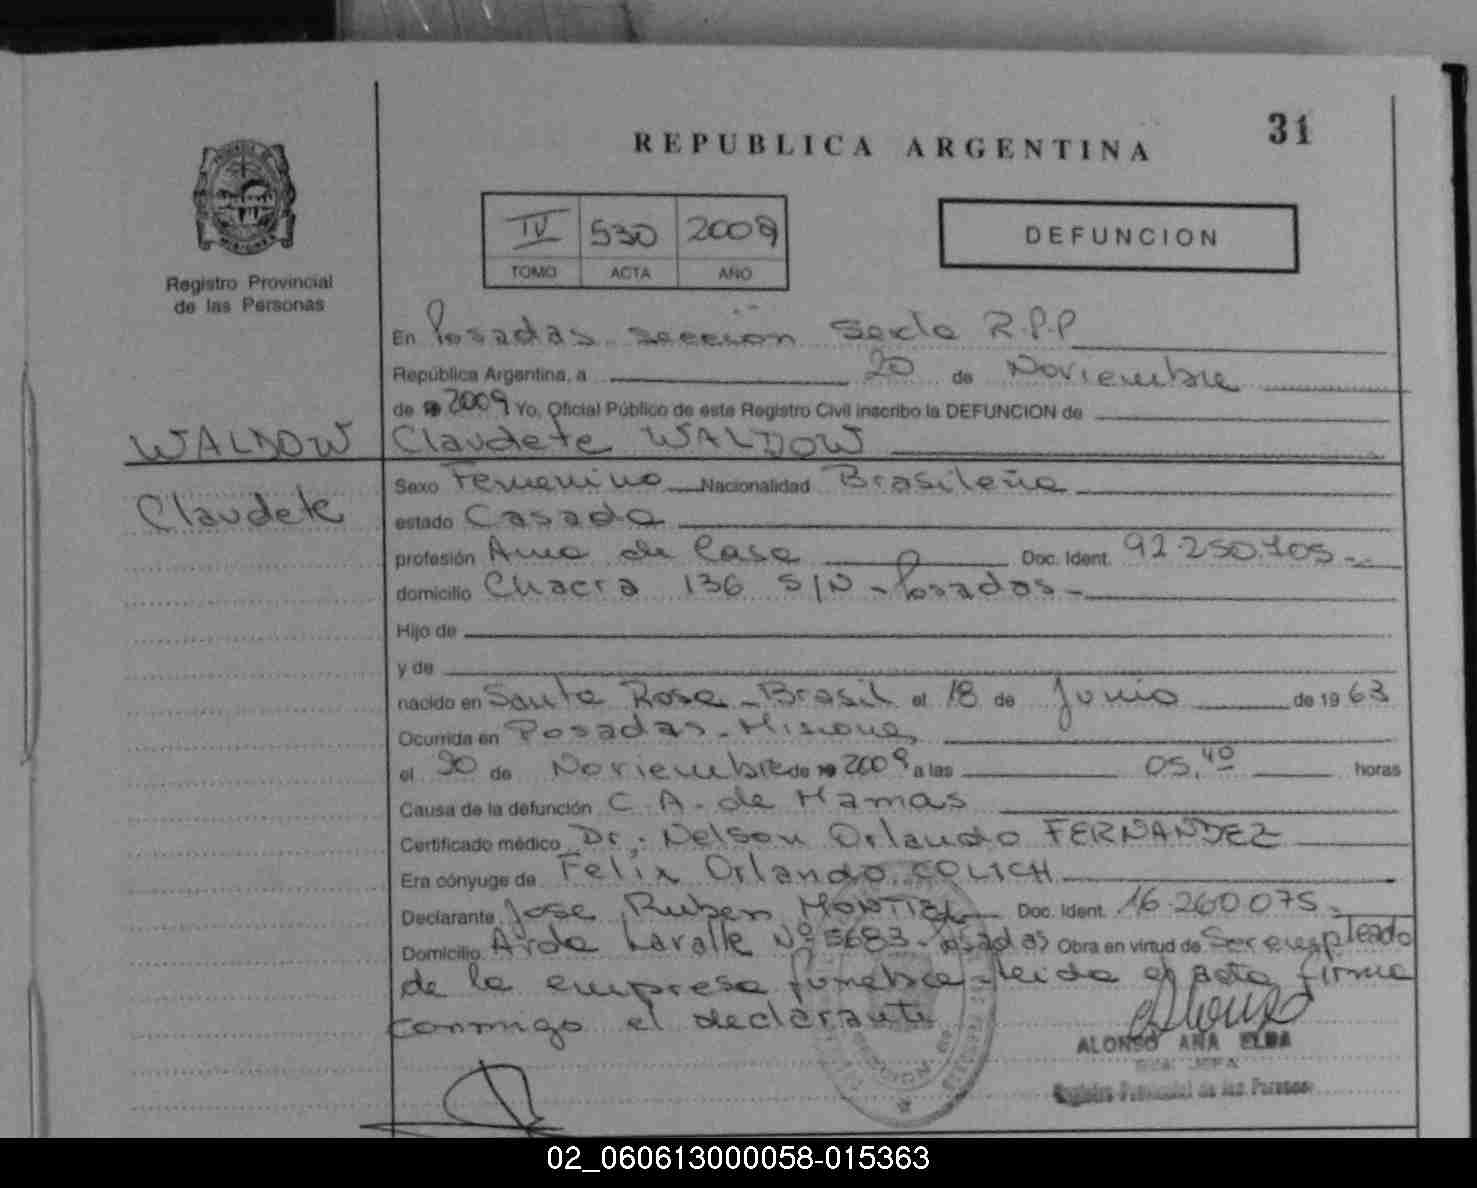 REPUBLICA ARGENTINA
31
IV 530 2009
TOMO ACTA AÑO
DEFUNCION
Registro Provincial
de las Personas
En Posadas seccion Sexta R.P.P
República Argentina, a 20 de Noviembre
de 2009 Yo, Oficial Público de este Registro Civil inscribo la DEFUNCION de
WALDOW
Claudete WALDOW
Claudete
Sexo Femenino Nacionalidad Brasileña
estado Casada
profesión Ama de Casa Doc. Ident. 92.250.105.-
domicilio Chacra 136 S/N - Posadas -
Hijo de
y de
nacido en Santa Rosa - Brasil el 18 de Junio de 1963
Ocurrida en Posadas - Misiones
el 20 de Noviembre de 2009 a las 05,40 horas
Causa de la defunción C.A. de Mamas
Certificado médico Dr.: Nelson Orlando FERNANDEZ
Era cónyuge de Felix Orlando COLICH
Declarante Jose Ruben MONTIEL Doc. Ident. 16.260.075.-
Domicilio Avda Lavalle Nº 5683 - Posadas Obra en virtud de Ser empleado
de la empresa funebre - leida el acta firma
conmigo el declarante
ALONSO ANA ELBA
JEFA
Registro Provincial de las Personas
02_060613000058-015363